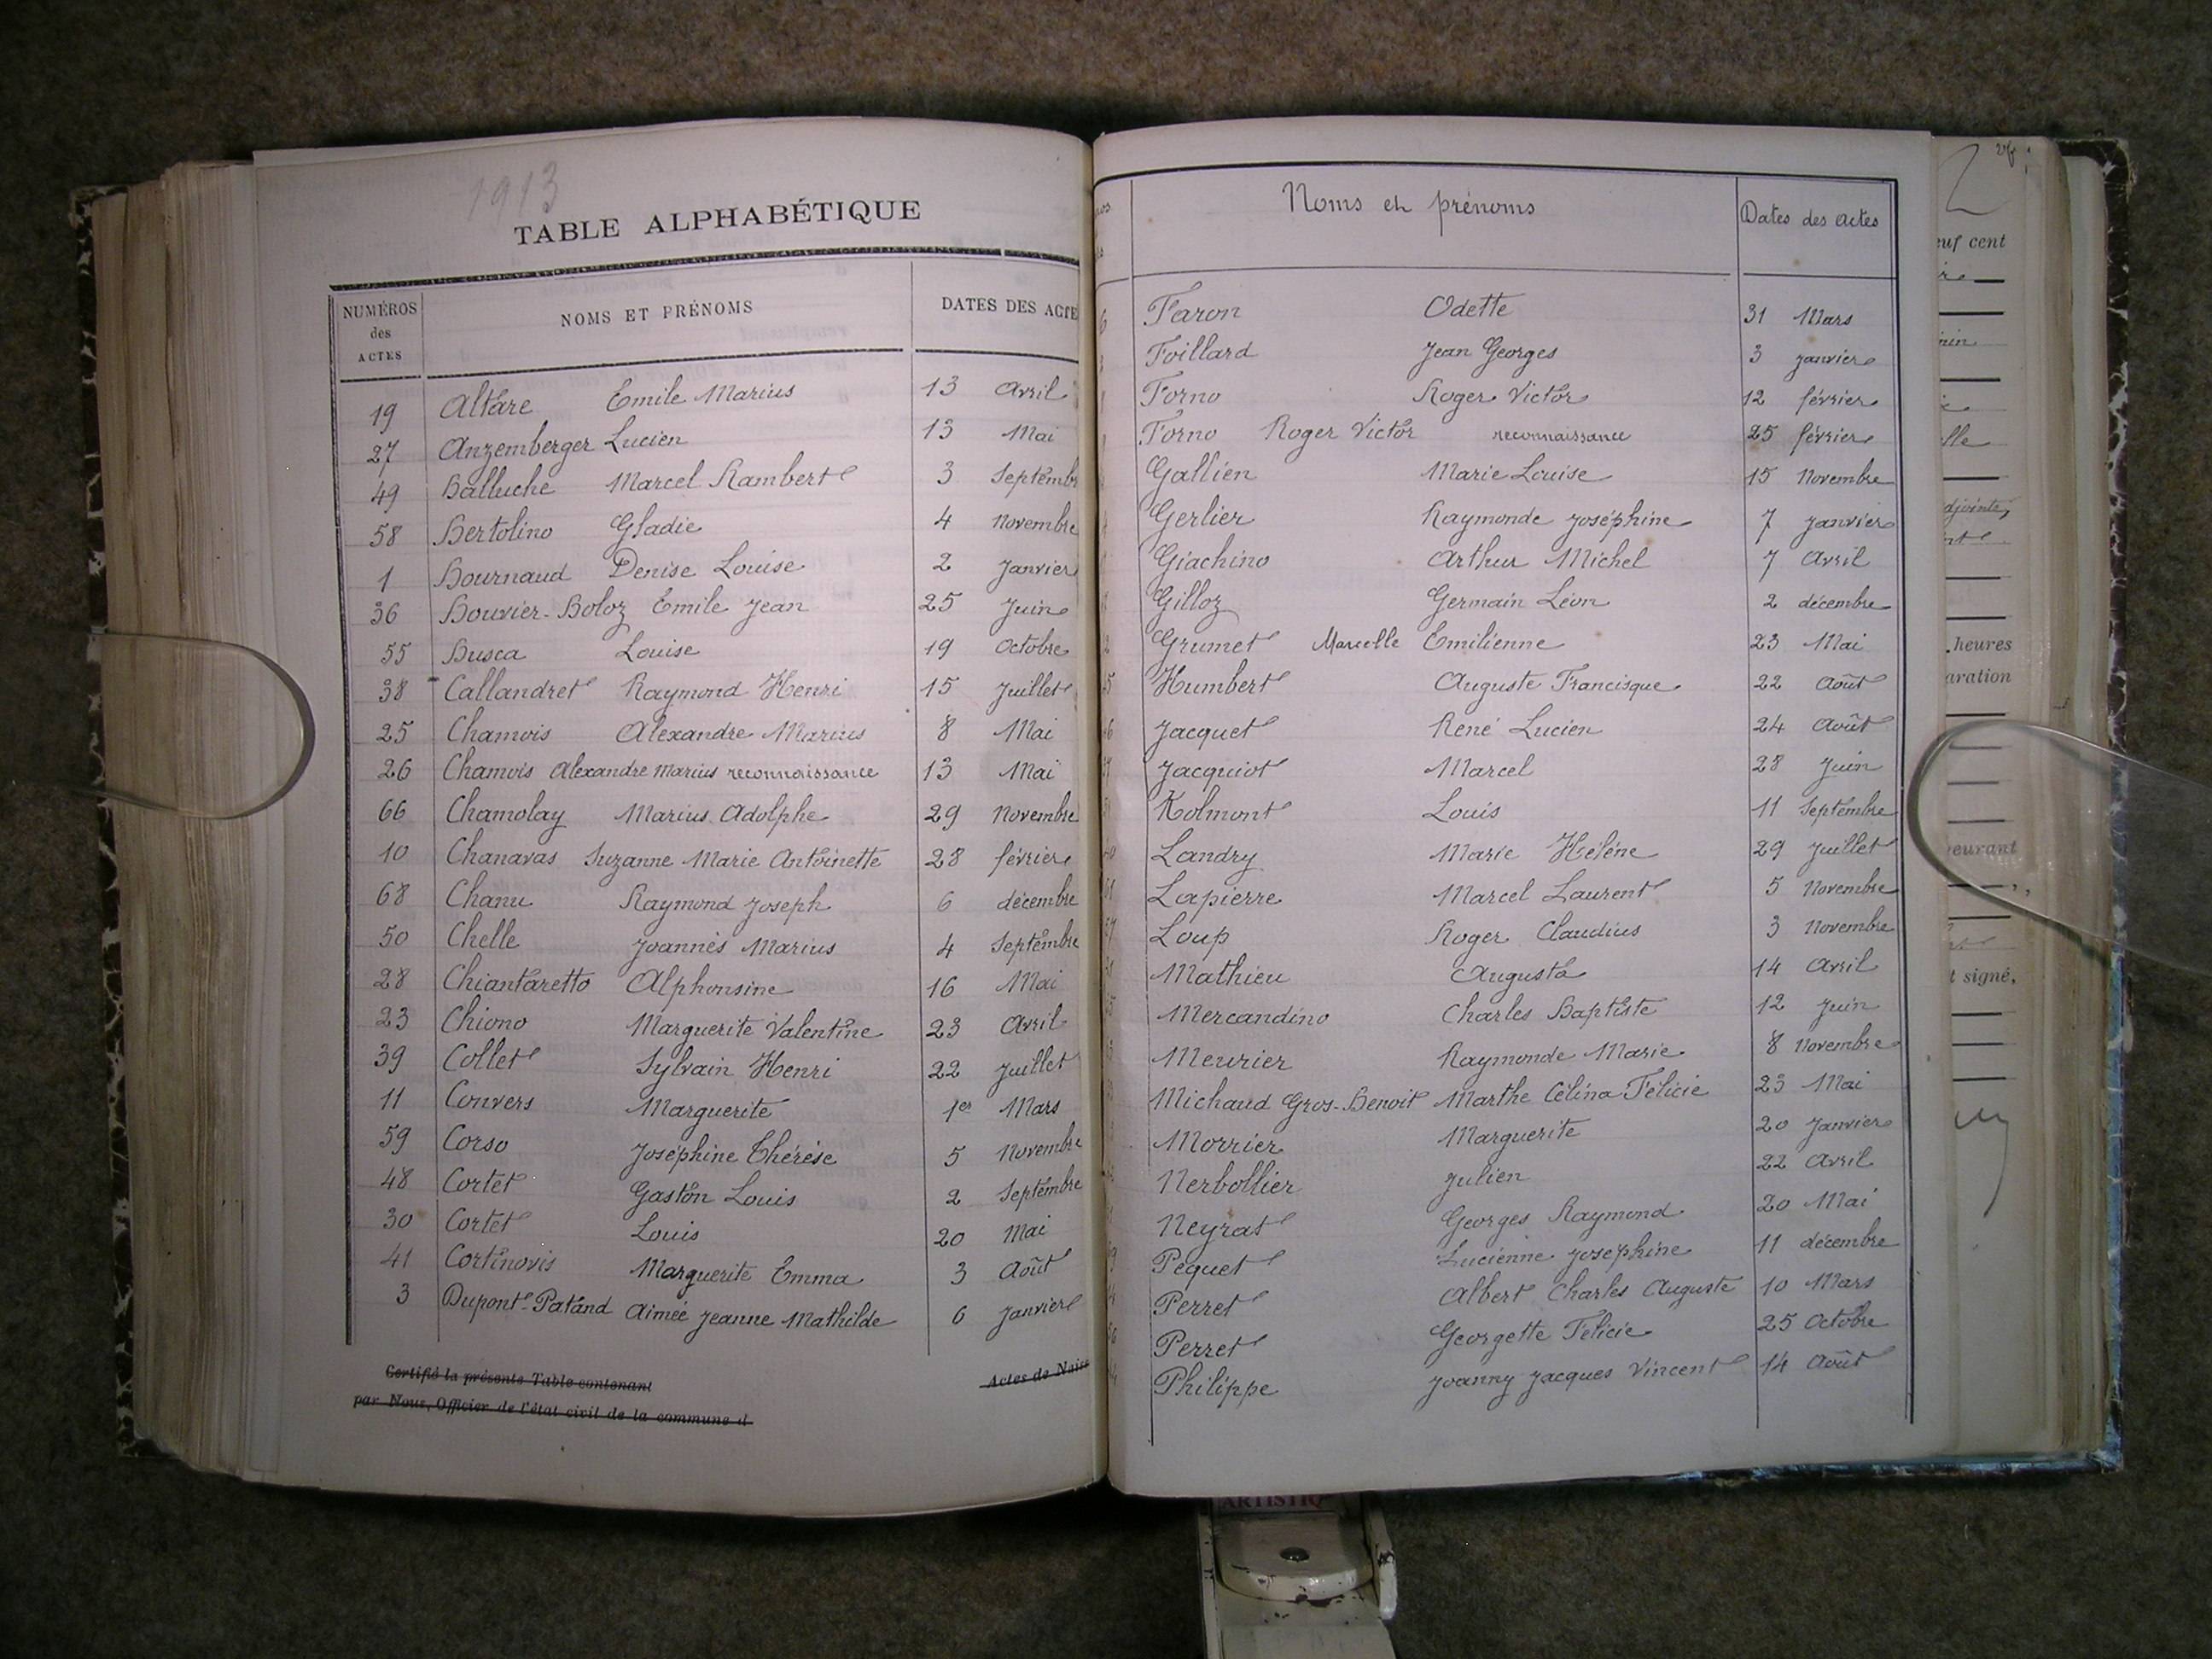 1913
TABLE ALPHABÉTIQUE
NUMÉROS des ACTES NOMS ET PRÉNOMS DATES DES ACTE
19 Altare Emile Marius 13 Avril
27 Anzemberger Lucien 13 Mai
49 Balluche Marcel Rambert 3 Septembr
58 Bertolino Gladie 4 Novembre
1 Bournaud Denise Louise 2 Janvier
36 Bouvier-Boloz Emile Jean 25 Juin
55 Busca Louise 19 Octobre
38 Callandret Raymond Henri 15 Juillet
25 Chamois Alexandre Marius 8 Mai
26 Chamois Alexandre Marius reconnaissance 13 Mai
66 Chamolay Marius Adolphe 29 Novembre
10 Chanavas Suzanne Marie Antoinette 28 février
68 Chanu Raymond Joseph 6 décembre
50 Chelle Joannès Marius 4 Septembre
28 Chiantaretto Alphonsine 16 Mai
23 Chiono Marguerite Valentine 23 Avril
39 Collet Sylvain Henri 22 Juillet
11 Convers Marguerite 1er Mars
59 Corso Joséphine Thérèse 5 Novembre
48 Cortet Gaston Louis 2 Septembre
30 Cortet Louis 20 Mai
41 Cortinovis Marguerite Emma 3 Août
3 Dupont-Patand Aimée Jeanne Mathilde 6 Janvier
Certifié la présente Table contenant Actes de Nais
par Nous, Officier de l'état civil de la commune d
Noms et prénoms Dates des actes
Faron Odette 31 Mars
Foillard Jean Georges 3 Janvier
Forno Roger Victor 12 février
Forno Roger Victor reconnaissance 25 février
Gallien Marie Louise 15 Novembre
Gerlier Raymonde Joséphine 7 Janvier
Giachino Arthur Michel 7 Avril
Gilloz Germain Léon 2 décembre
Grumet Marcelle Emilienne 23 Mai
Humbert Auguste Francisque 22 Août
Jacquet René Lucien 24 Août
Jacquiot Marcel 28 Juin
Kolmont Louis 11 Septembre
Landry Marie Hélène 29 Juillet
Lapierre Marcel Laurent 5 Novembre
Loup Roger Claudius 3 Novembre
Mathieu Augusta 14 Avril
Mercandino Charles Baptiste 12 Juin
Meurier Raymonde Marie 8 Novembre
Michaud Gros-Benoit Marthe Célina Félicie 23 Mai
Morrier Marguerite 20 Janvier
Nerbollier Julien 22 Avril
Neyrat Georges Raymond 20 Mai
Pequet Lucienne Joséphine 11 décembre
Perret Albert Charles Auguste 10 Mars
Perret Georgette Félicie 25 Octobre
Philippe Joanny Jacques Vincent 14 Août
euf cent
elle
adjointe,
heures
aration
eurant
t signé,
ARTISTIQ